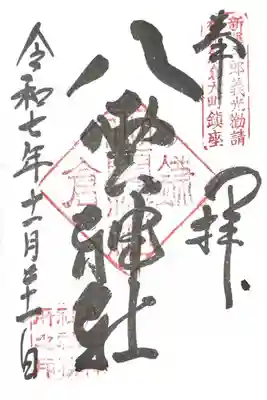 奉拝
八雲神社
令和七年十二月二十一日
新羅三郎義光勧請
鎮座
鎌倉